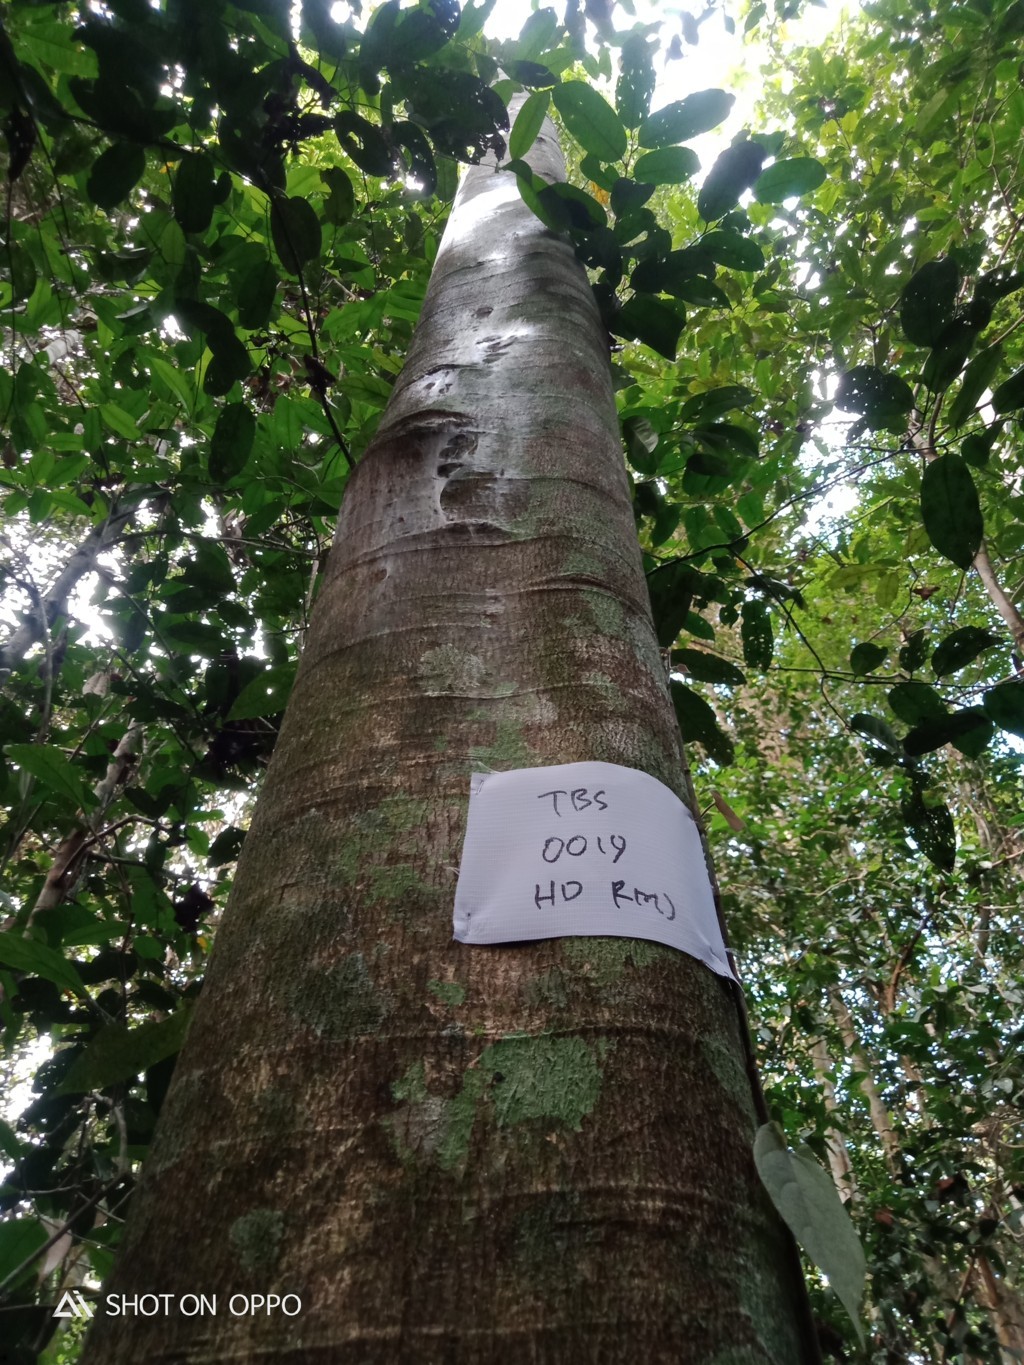 TBS
0019
HD R(M)
SHOT ON OPPO